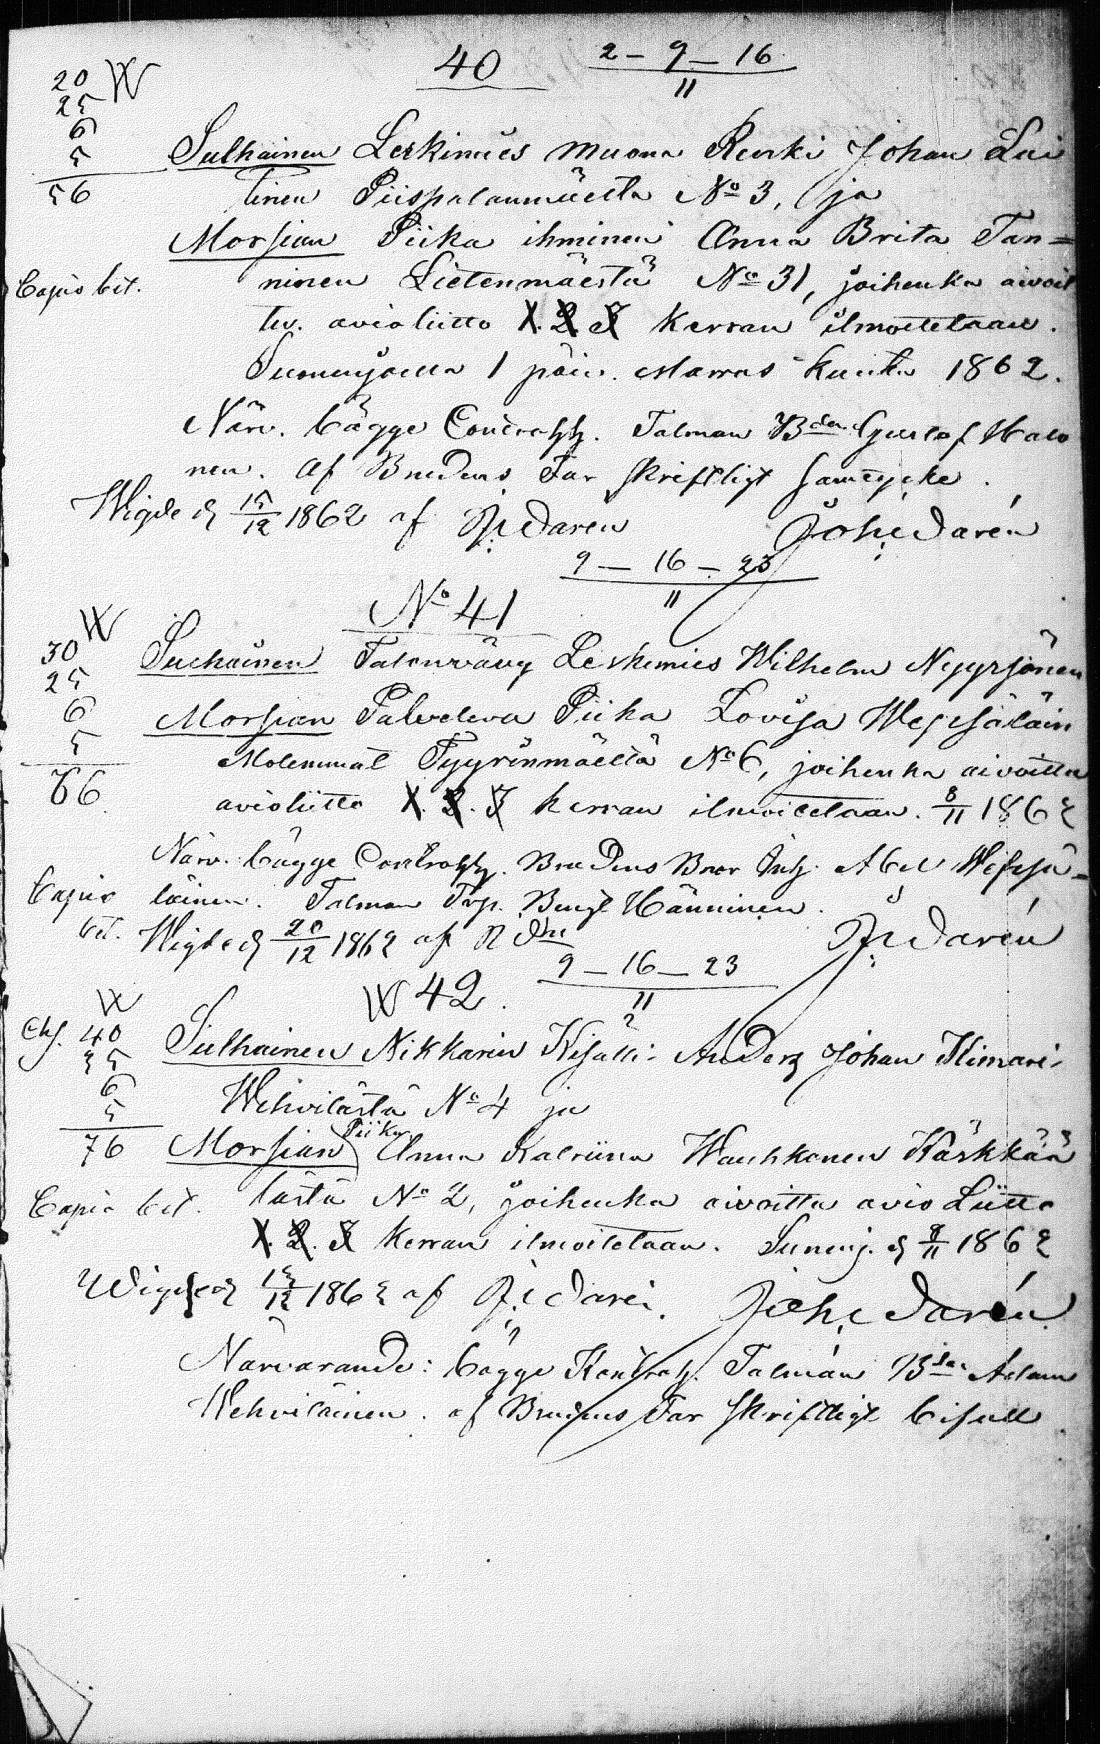 40 2 – 9 – 16
11
20
25
6
5
56
Sulhainen Leskimies Muona Renki Johan Lui
tinen Piispalanmäeltä No 3, ja
Morsian Piika ihminen Anna Brita Tan=
ninen Lietenmäestä No 31, joihenka aivoit
tu. avioliitto 1. 2. 3 kerran ilmoitetaan.
Copia bit.
Sumenjoella 1 päiv. Marras kuuta 1862.
Närv. bägge Contrah. Talman Bden Gustaf Halo
nen. Af Brudens Far skriftligt samtycke.
Wigde d 15/12 1862 af Joh Darén
Joh Darén
9 – 16 – 23
11
No 41
30
25
6
5
66
Sulhainen Talonvävy Leskimies Wilhelm Nyyssönen
Morsian Palveleva Piika Lovisa Wepsäläin
Molemmat Tyyrinmäeltä No 6, joihenka aivoittu
avioliitto 1. 2. 3 kerran ilmoitetaan. 8/11 1862
Närv. bägge Contrah. Brudens Bror Abel Wepsä=
läinen. Talman Torp. Bengt Hänninen.
Copia
bit.
Wigde d 20/12 1862 af
Joh Darén
9 – 16 – 23
11
42.
40
25
6
5
76
Sulhainen Nikkarin Kisälli Anders Johan Himari
Wehvilästä No 4 ja
Morsian Piika Anna Katriina Wauhkonen Käskkää
lästä No 2, joihenka aivoittu avio Liitto
Copia bit.
1. 2. 3 kerran ilmoitetaan. Sumenj. d 8/11 1862
Wigde d 13/12 1862 af Joh Darén.
Joh Darén
Närvarande: bägge Kontrah. Talman Bden Adam
Wehviläinen. af Brudens Far skriftligt bifall